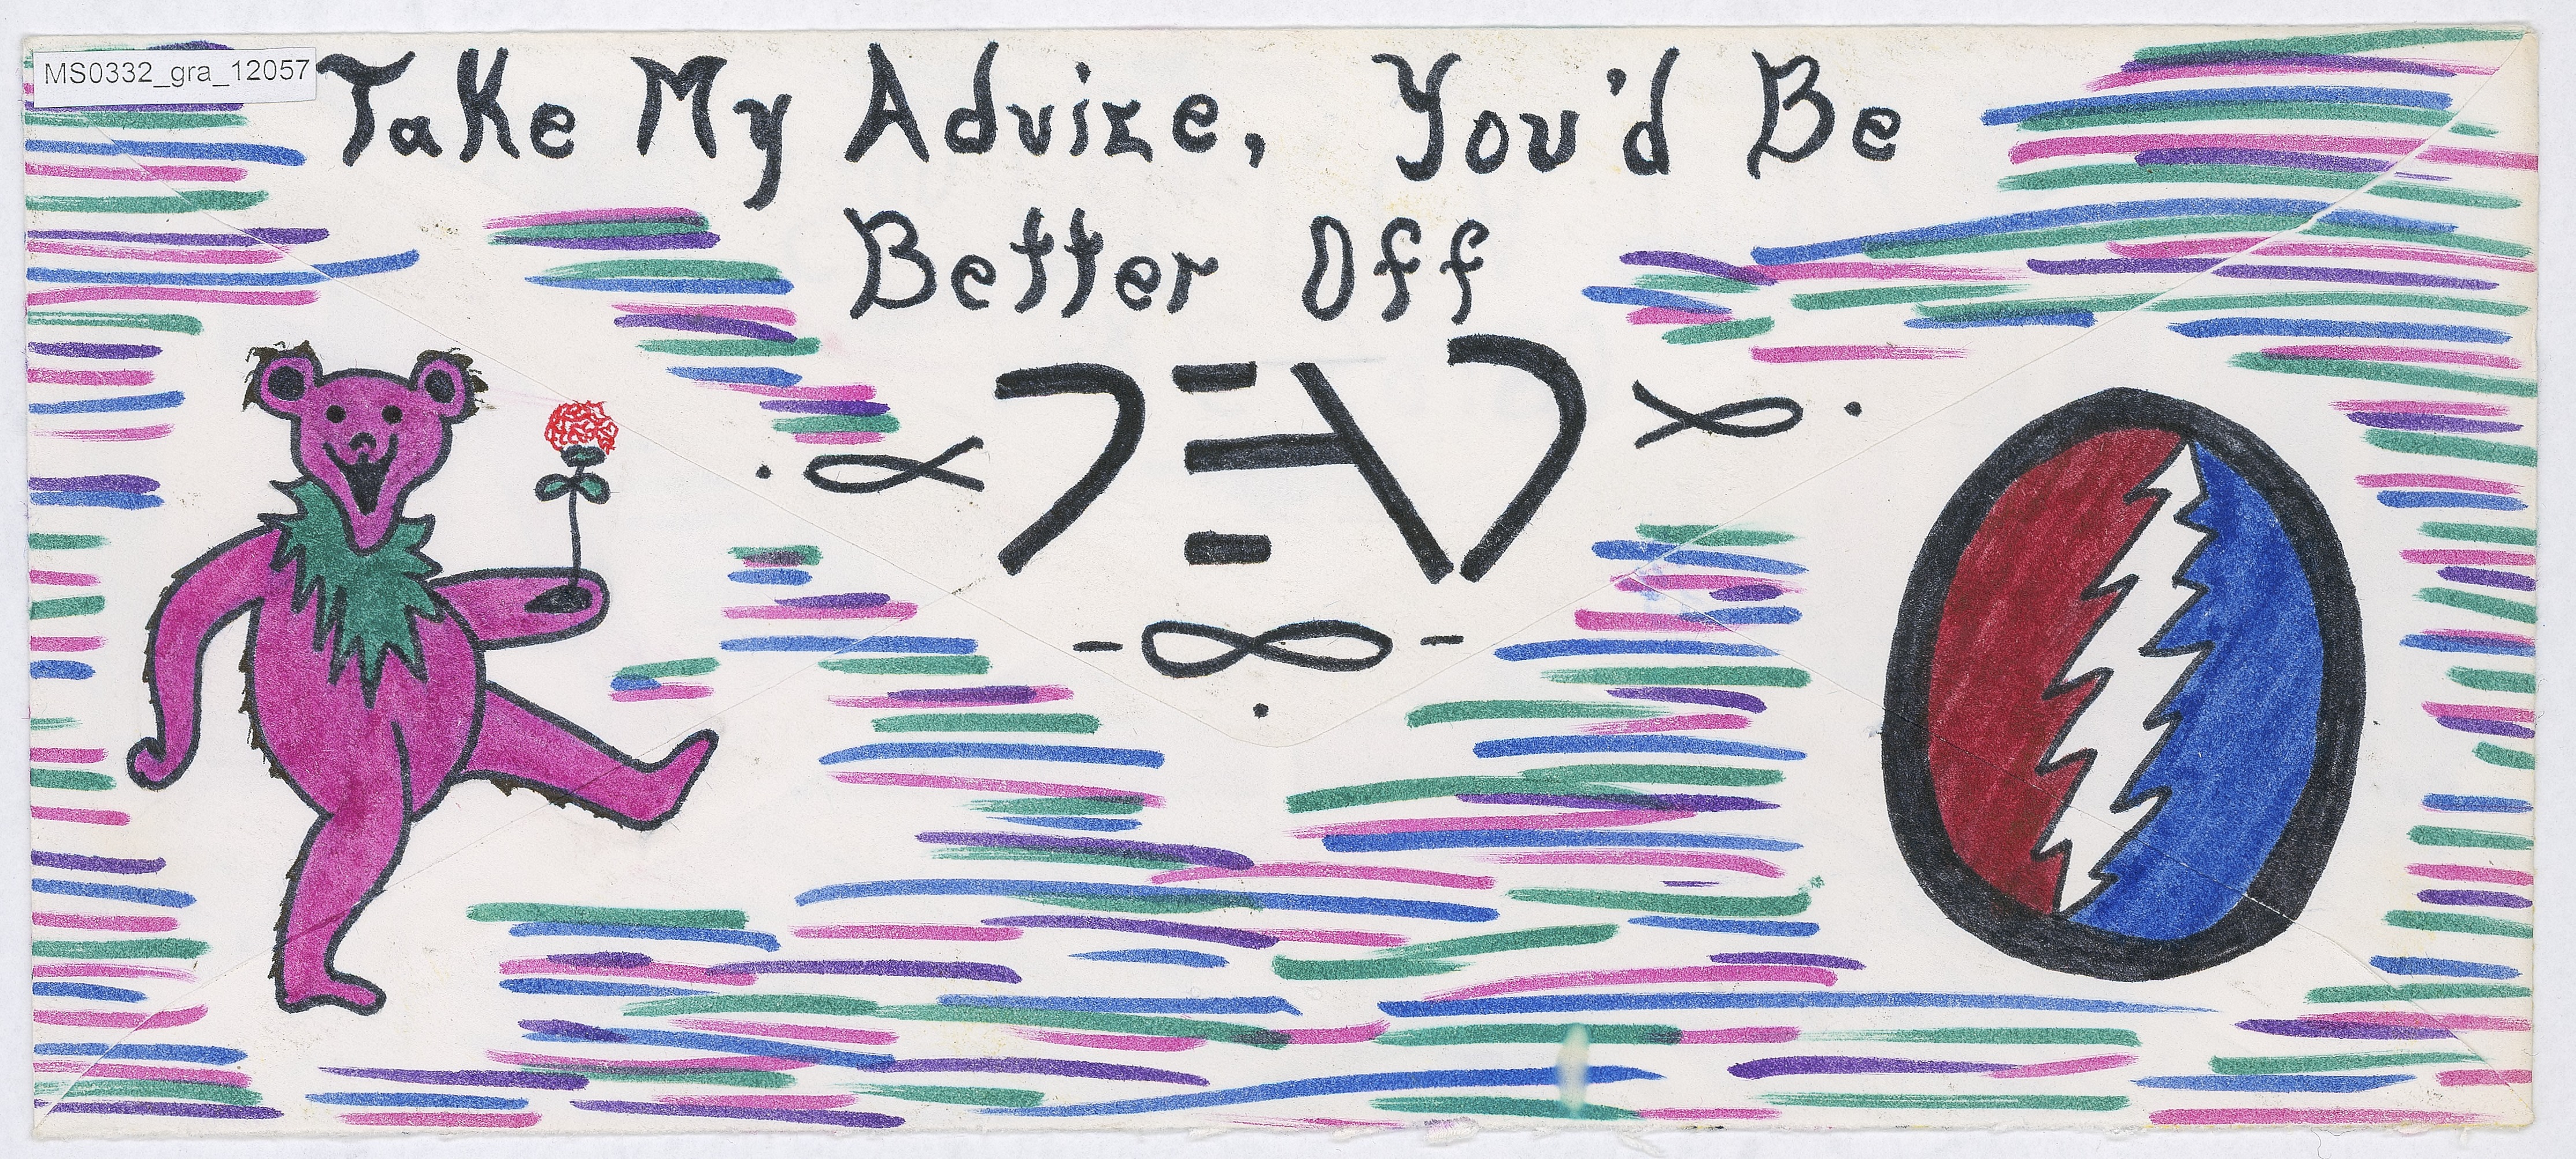 MS0332_gra_12057
Take My Advize, You'd Be
Better Off
DEAD